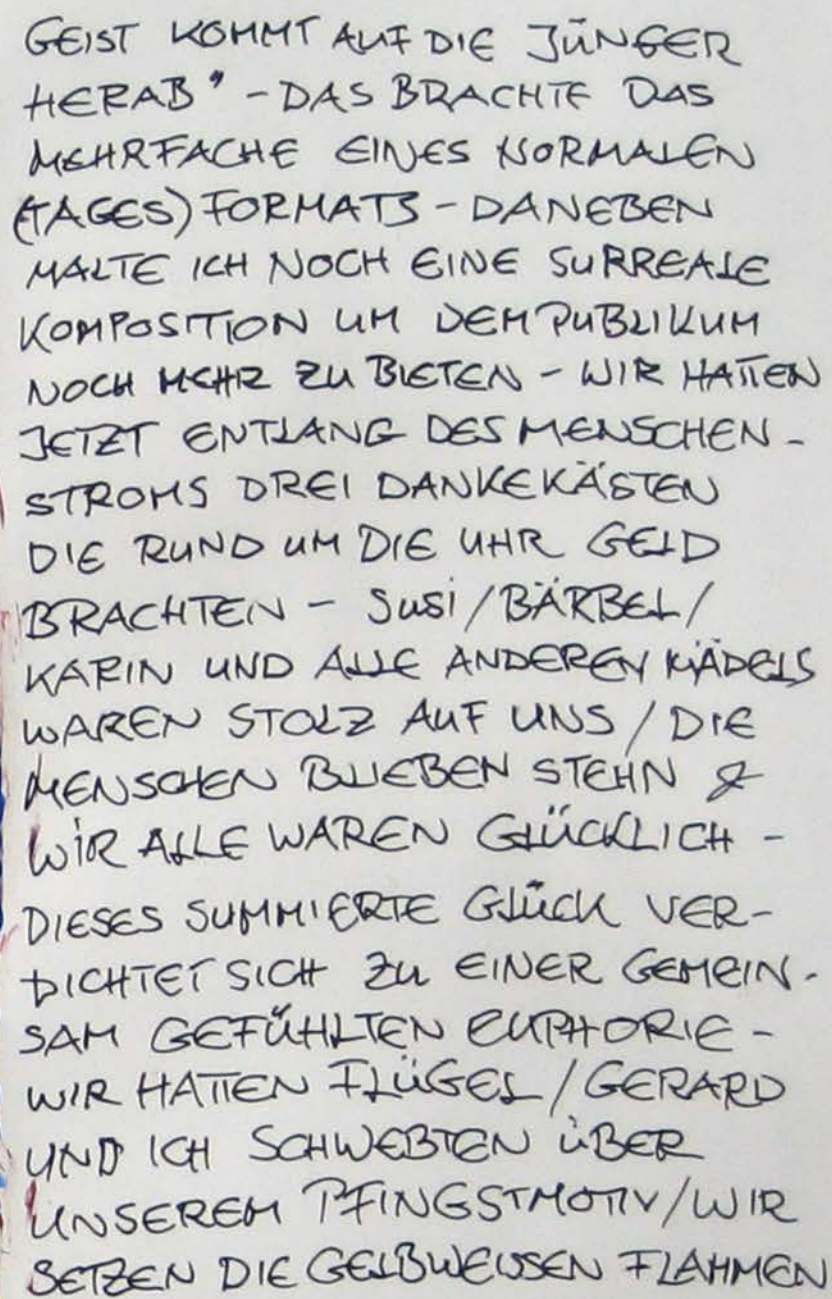 GEIST KOMMT AUF DIE JÜNGER
HERAB" - DAS BRACHTE DAS
MEHRFACHE EINES NORMALEN
(TAGES) FORMATS - DANEBEN
MALTE ICH NOCH EINE SURREALE
KOMPOSITION UM DEM PUBLIKUM
NOCH MEHR ZU BIETEN - WIR HATTEN
JETZT ENTLANG DES MENSCHEN-
STROMS DREI DANKEKÄSTEN
DIE RUND UM DIE UHR GELD
BRACHTEN - SUSI / BÄRBEL /
KARIN UND ALLE ANDEREN MÄDELS
WAREN STOLZ AUF UNS / DIE
MENSCHEN BLIEBEN STEHN &
WIR ALLE WAREN GLÜCKLICH -
DIESES SUMMIERTE GLÜCK VER-
DICHTET SICH ZU EINER GEMEIN-
SAM GEFÜHLTEN EUPHORIE -
WIR HATTEN FLÜGEL / GERARD
UND ICH SCHWEBTEN ÜBER
UNSEREM PFINGSTMOTIV / WIR
SETZEN DIE GELBWEISSEN FLAMMEN